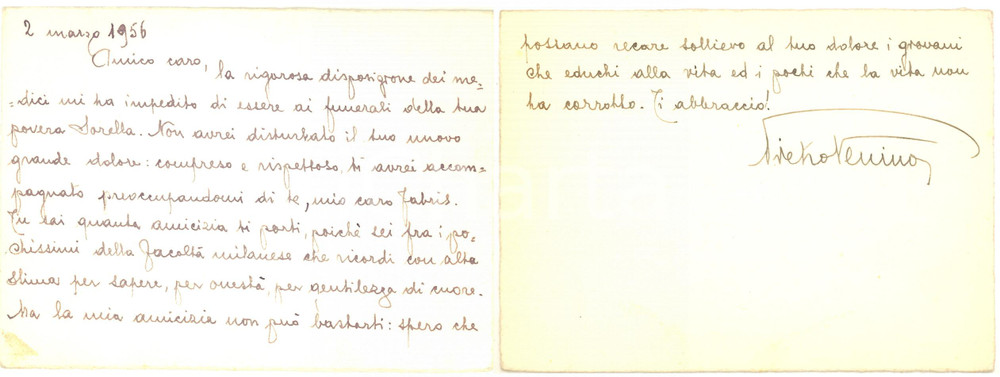 2 marzo 1956
Amico caro,
la rigorosa disposizione dei me-
dici mi ha impedito di essere ai funerali della tua
povera Sorella. Non avrei disturbato il tuo nuovo
grande dolore: compreso e rispettoso, ti avrei accom-
pagnato preoccupandomi di te, mio caro Fabris.
Tu sai quanta amicizia ti porti, poichè sei fra i po-
chissimi della Facoltà milanese che ricordi con alta
stima per sapere, per onestà, per gentilezza di cuore.
Ma la mia amicizia non può bastarti: spero che
possano recare sollievo al tuo dolore i giovani
che educhi alla vita ed i pochi che la vita non
ha corrotto. Ti abbraccio!
Pietro